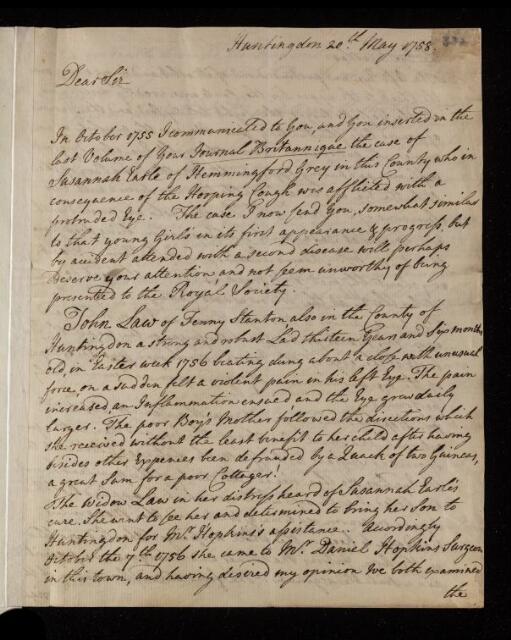 Huntingdon 20th May 1758.
Dear Sir
In October 1755 I communicated to You, and You inserted in the
last Volume of Your Journal Britannique the case of
Susannah Earle of Hemmingford Grey in this County who in
consequence of the Hooping Cough was afflicted with a
protruded Eye. The case I now send You, somewhat similar
to that young Girls in its first appearance & progress, but
by accident attended with a second disease will perhaps
deserve your attention and not seem unworthy of being
presented to the Royal Society.
John Law of Fenny Stanton also in the County of
Huntingdon a strong and robust Lad thirteen Years and Six months
old, in Easter week 1756 beating dung about a close with unusual
force, on a sudden felt a violent pain in his left Eye. The pain
increased, an Inflammation ensued and the Eye grew daily
larger. The poor Boy's Mother followed the directions which
she received without the least benefit to her child after having
besides other Expences been defrauded by a Quack of two Guineas,
a great Sum for a poor Cottager!
The Widow Law in her distress heard of Susannah Earle's
cure. She went to see her and determined to bring her Son to
Huntingdon for Mr. Hopkins's assistance. Accordingly
October the 7th 1756 she came to Mr. Daniel Hopkins Surgeon
in this town, and having desired my opinion We both examined
the